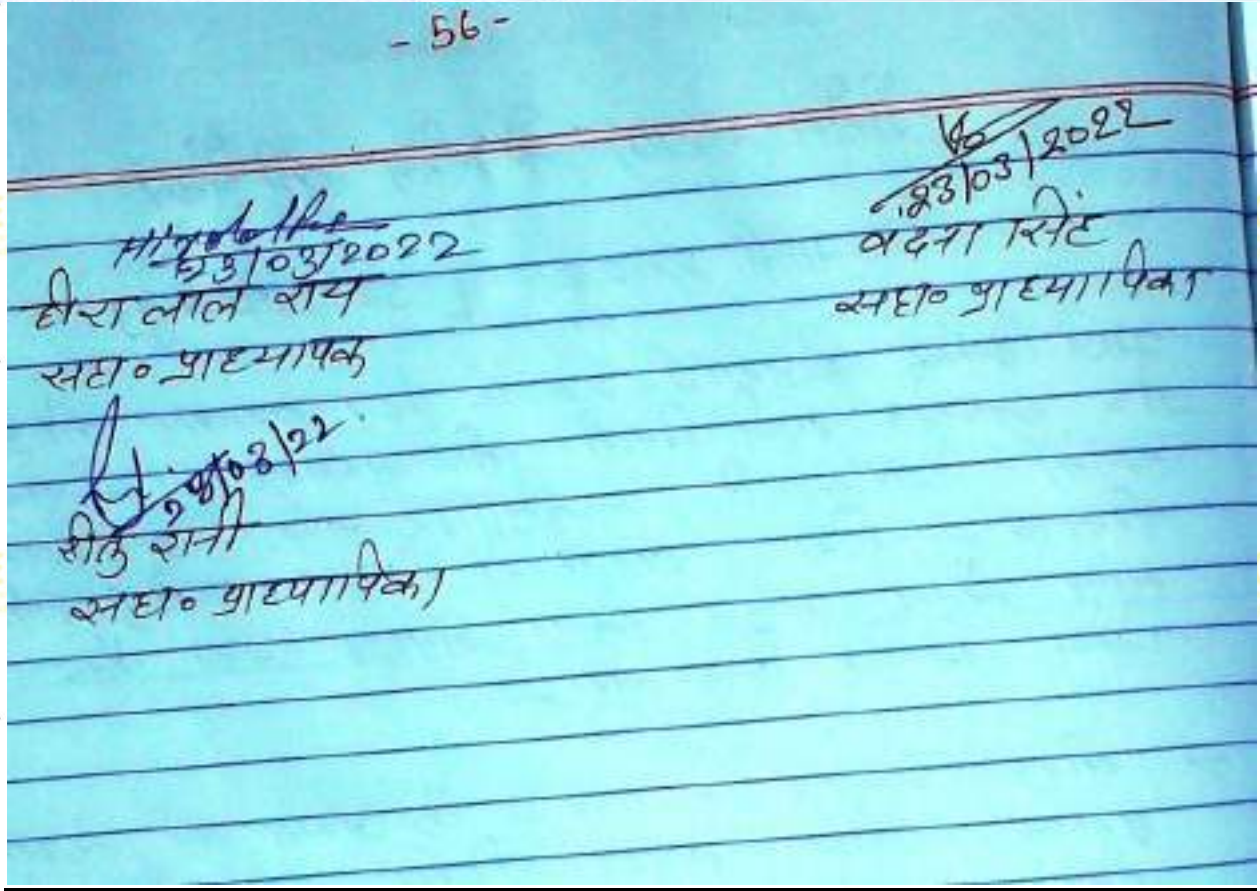 - 56 -
23/03/2022
हीरा लाल राय
सहा० प्राध्यापक
23/03/2022
वंदना सिंह
सहा० प्राध्यापिका
/03/22
रीतु रानी
सहा० प्राध्यापिका